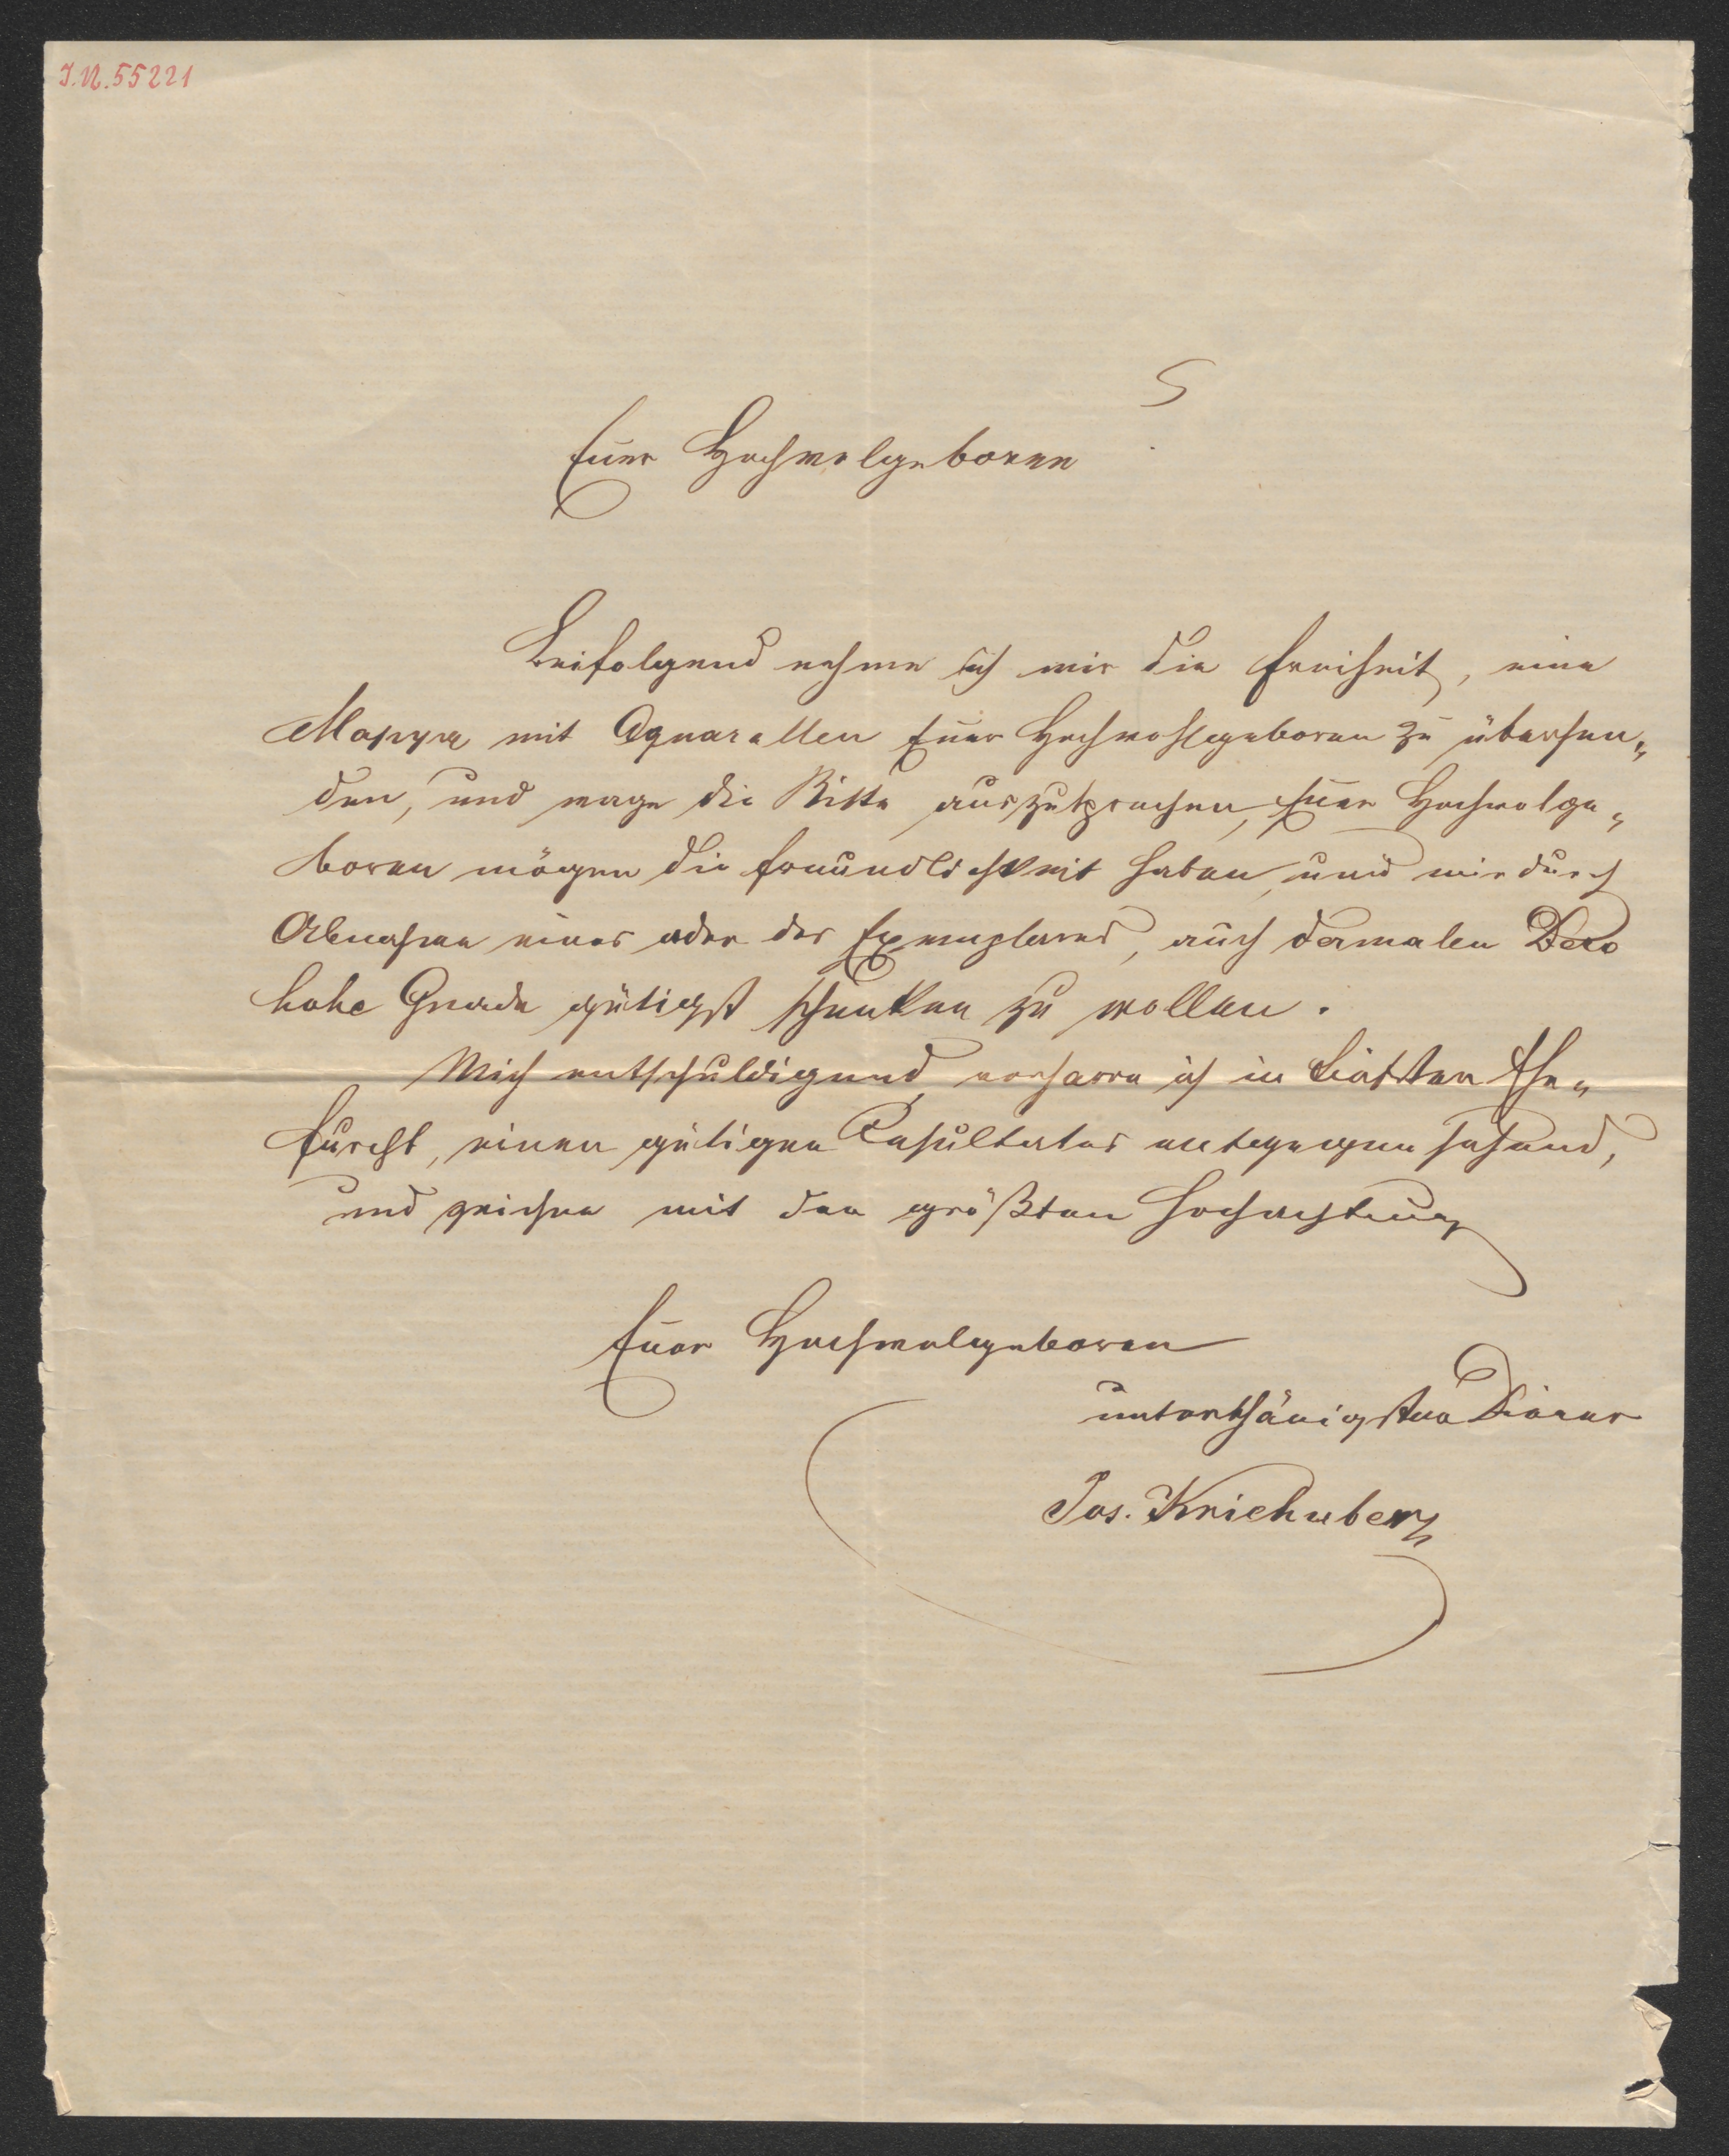 I.N. 55221
Euer Hochwolgeboren
Beifolgend nehme ich mir die Freiheit, eine
Mappe mit Aquarellen Euer Hochwohlgeboren zu übersen„
den, und wage die Bitte auszusprechen, Euer Hochwolge„
boren mögen die Freundlichkeit haben, und mir durch
Abnahme eines oder des Exemplares, auch dermalen Dero
hohe Gnade gütigst schenken zu wollen.
Mich entschuldigend verharre ich in tiefster Ehr„
furcht, einen gütigen Resultates entgegen sehend,
und zeichne mit der größten Hochachtung
Euer Hochwolgeboren
unterthänigster Diener
Jos. Kriehuber